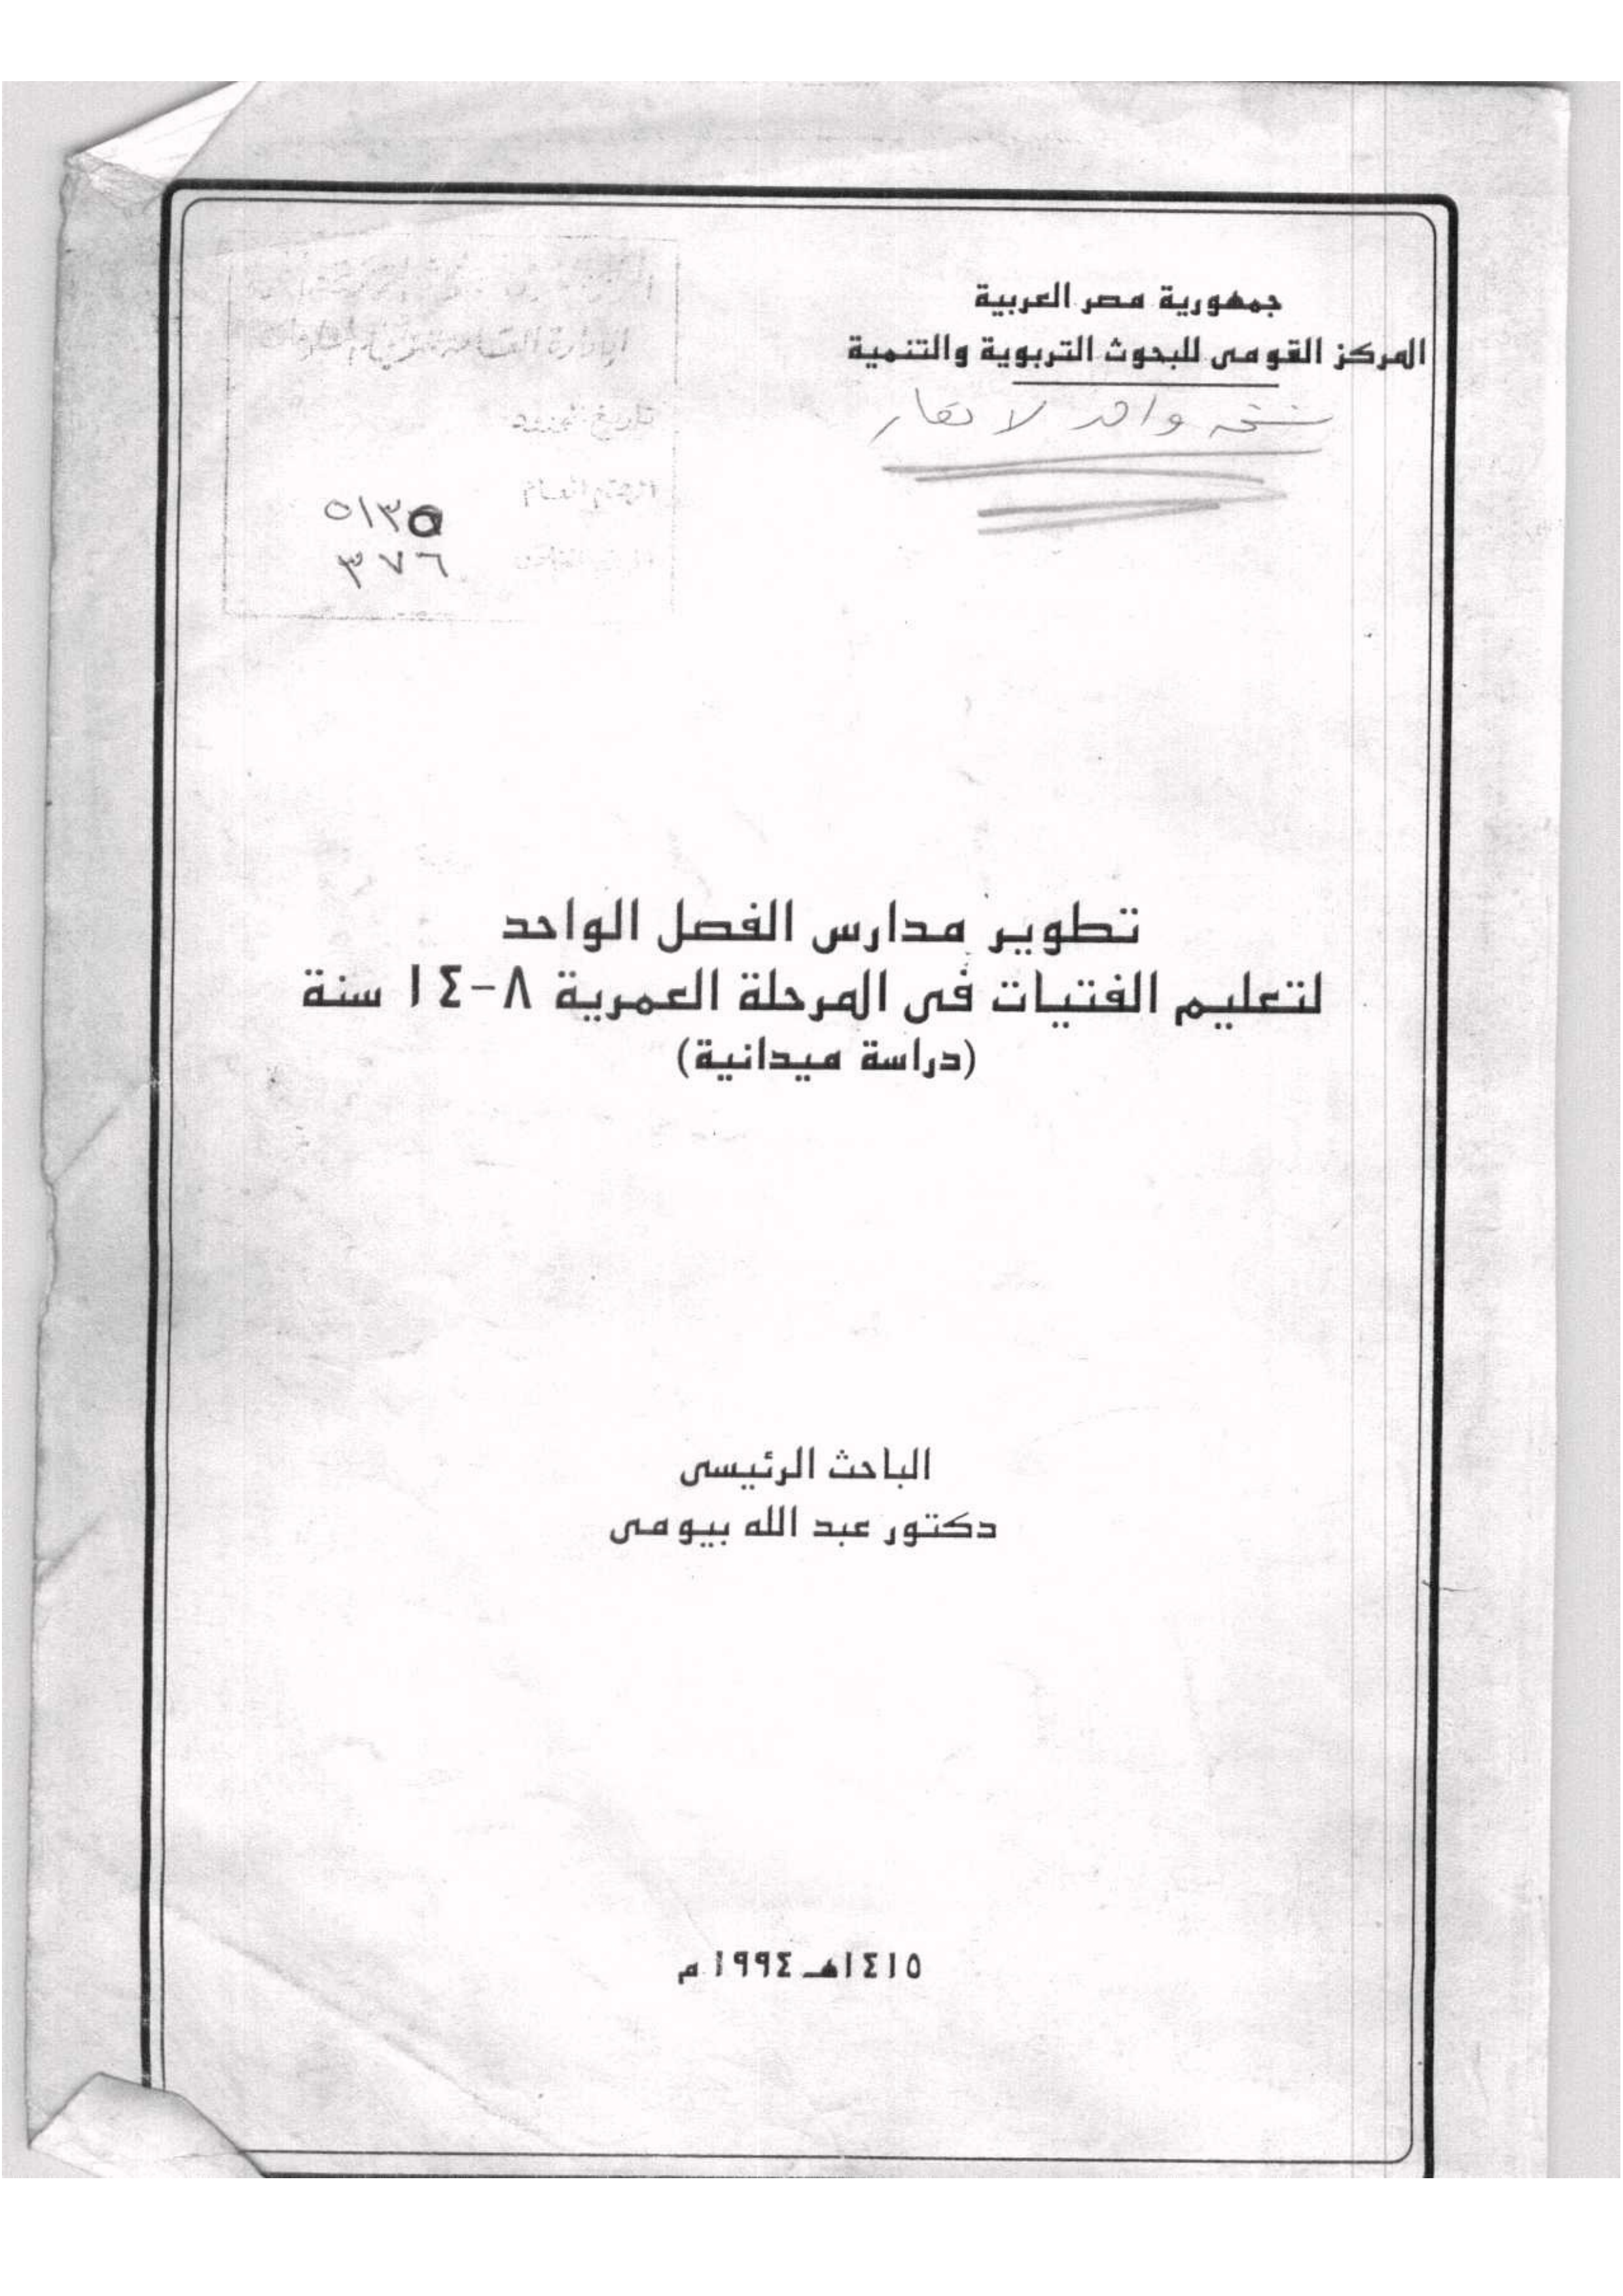 جمهورية مصر العربية
المركز القومى للبحوث التربوية والتنمية
نسخة واحدة لا تعار
٥١٣٥
٣٧٦
تطوير مدارس الفصل الواحد
لتعليم الفتيات فى المرحلة العمرية ٨-١٤ سنة
(دراسة ميدانية)
الباحث الرئيسى
دكتور عبد الله بيومى
١٤١٥هـ ١٩٩٤ م